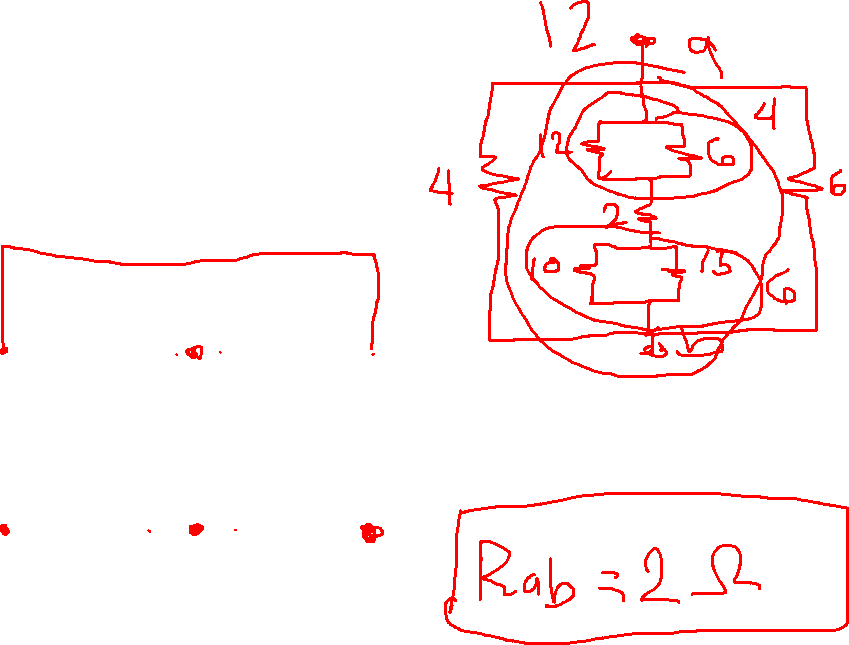 12
a
4
12 6
4 2 6
10 15
6
b
Rab = 2 Ω